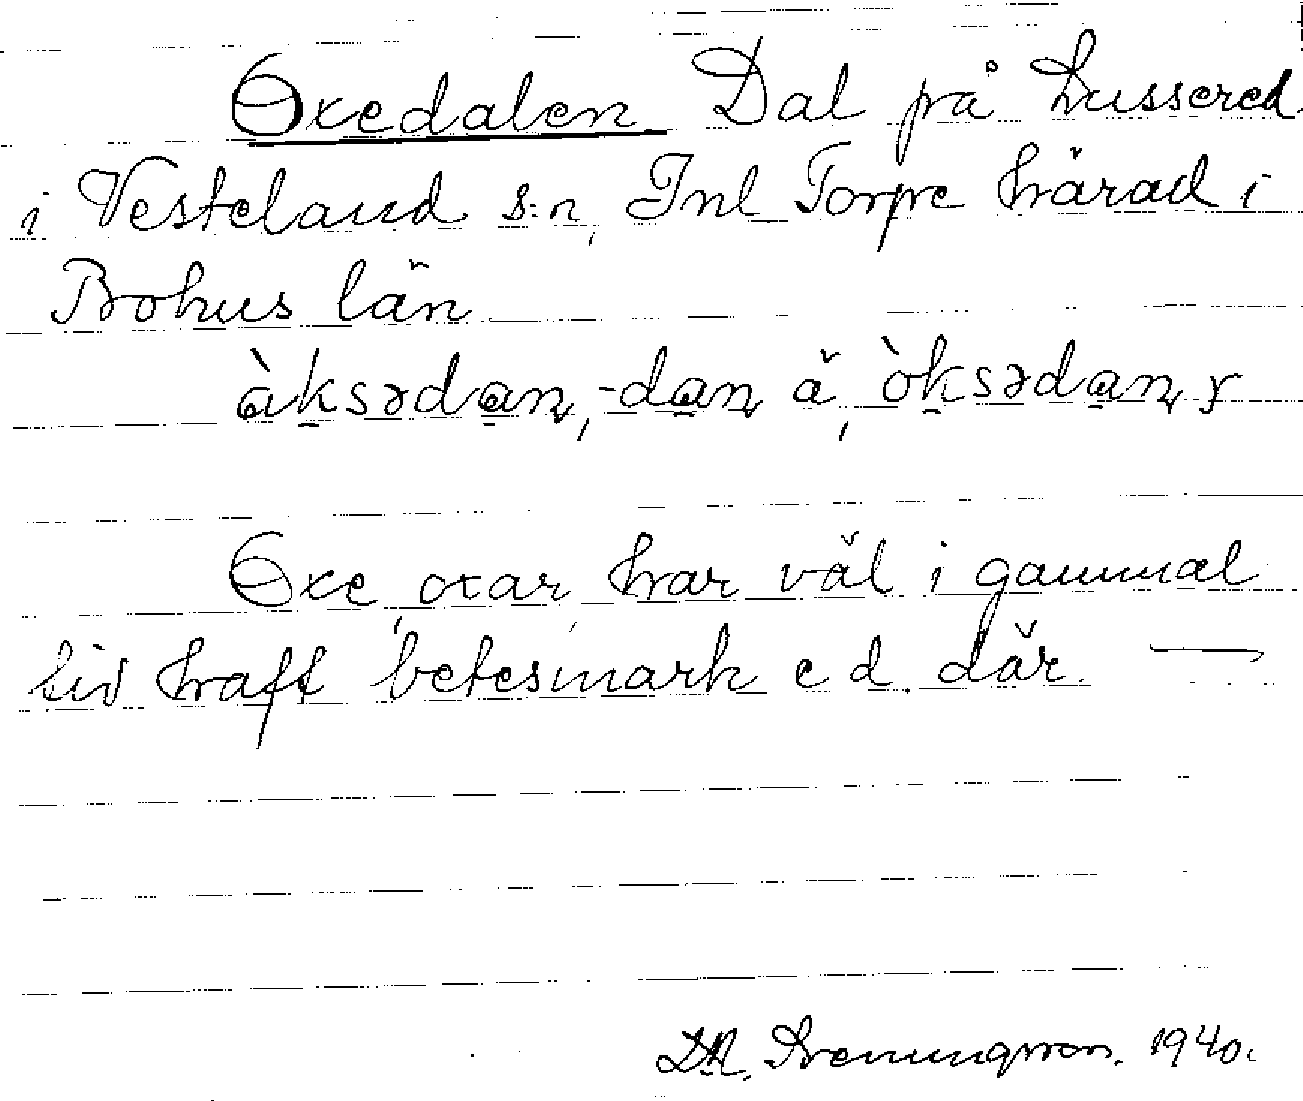 Oxedalen Dal på Hussered
i Vesteland s:n, Inl Torpe härad i
Bohus län
àksədan, -dan å, òksədan, y
Oxe, oxar, har väl i gammal
tid haft betesmark e d där. —
D.A. Svenungsson. 1940.